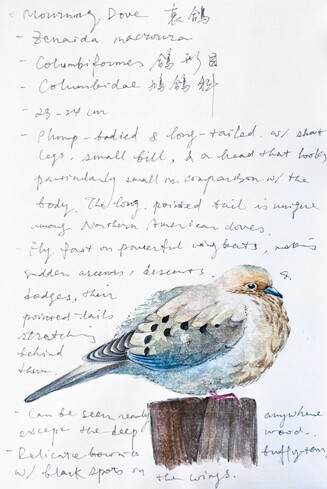 Mourning Dove 哀鴿
- Zenaida macroura
- Columbiformes 鴿形目
- Columbidae 鳩鴿科
- 23-24 cm
- Plump-bodied & long-tailed. w/ short
legs. small bill, & a head that looks
particularly small in comparison w/ the
body. The long. pointed tail is unique
among Northern American doves.
- Fly fast on powerful wing beats, making
sudden ascents, descents.
dodges. their
pointed tails
stretching
behind
them.
- Can be seen nearly anywhere
except the deep wood.
- Delicate brown & buffy-tan,
w/ black spots on the wings.